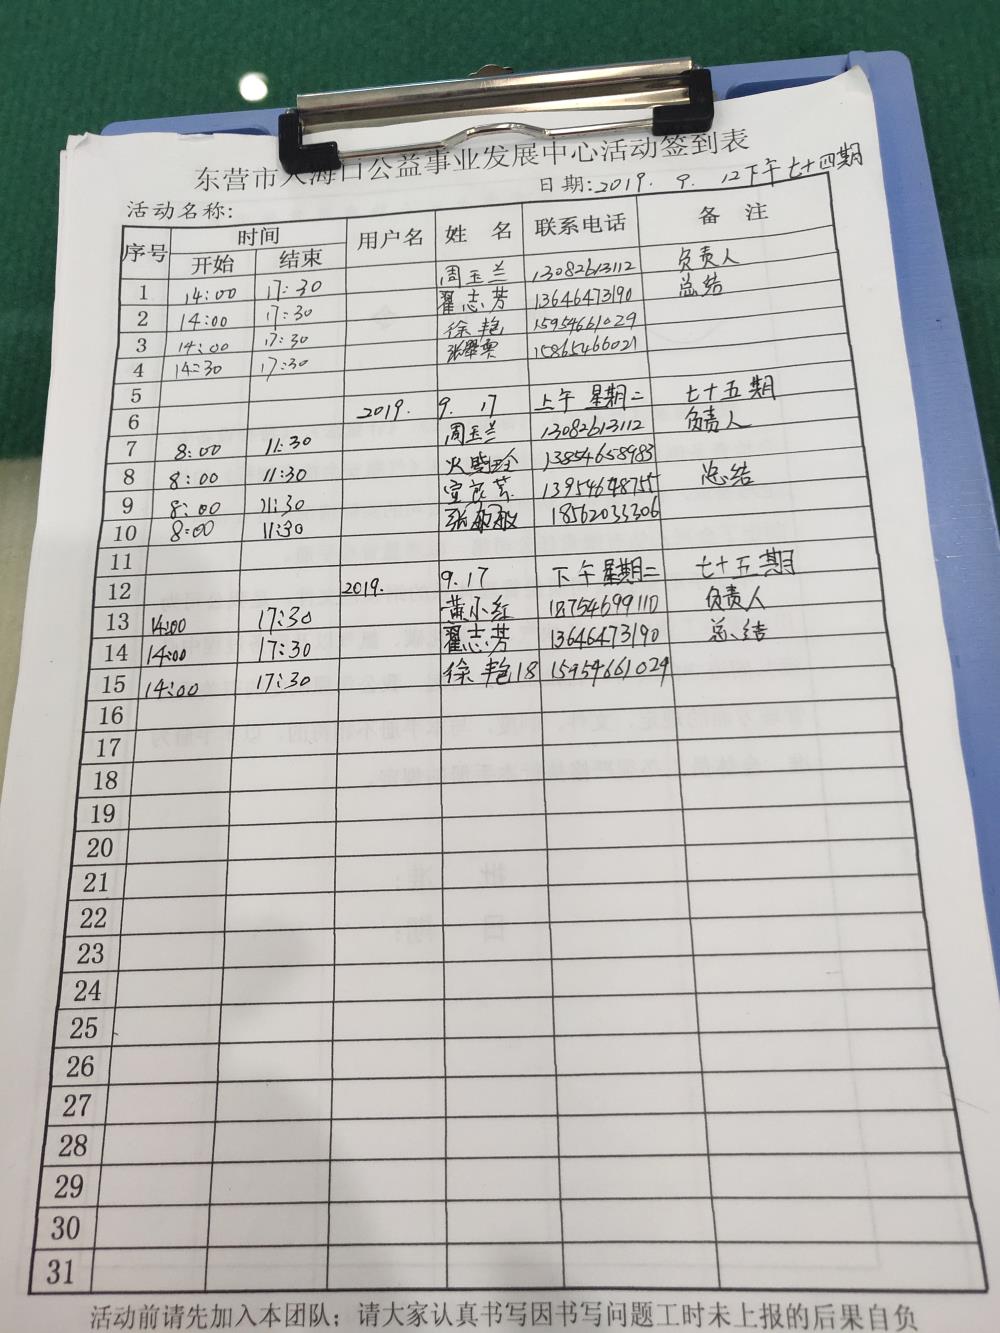 东营市人海口公益事业发展中心活动签到表
日期:2019. 9. 12下午七十四期
活动名称:
序号 时间 用户名 姓 名 联系电话 备 注
开始 结束
1 14:00 17:30 周玉兰 13082613112 负责人
2 14:00 17:30 翟志芳 13646473190 总结
3 14:00 17:30 徐艳 15954661029
4 14:30 17:30 15865466021
5
6 2019. 9. 17 上午 星期二 七十五期
7 8:00 11:30 周玉兰 13082613112 负责人
8 8:00 11:30 13854658983
9 8:00 11:30 13954648755 总结
10 8:00 11:30 18562033306
11
12 2019. 9.17 下午星期二 七十五期
13 14:00 17:30 黄小红 18754699110 负责人
14 14:00 17:30 翟志芳 13646473190 总结
15 14:00 17:30 徐艳18 15954661029
16
17
18
19
20
21
22
23
24
25
26
27
28
29
30
31
活动前请先加入本团队;请大家认真书写因书写问题工时未上报的后果自负